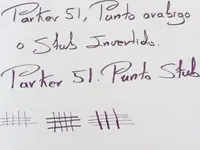 Parker 51, Punto arabigo
o Stub Invertido.
Parker 51. Punto Stub